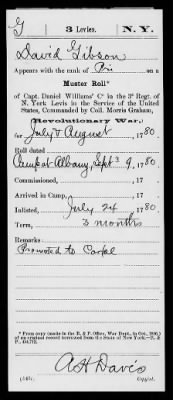 G 3 Levies. N.Y.
David Gibson
Appears with the rank of Pri on a
Muster Roll*
of Capt. Daniel Williams' Co in the 3d Regt. of
N. York Levies in the Service of the United
States, Commanded by Col. Morris Graham,
(Revolutionary War,)
for July & August, 1780.
Roll dated
Camp at Albany, Sept 9, 1780.
Commissioned, , 17 .
Arrived in Camp, , 17 .
Enlisted, July 24, 1780.
Term, 3 months
Remarks
Promoted to Corpl
* From copy (made in the R. & P. Office, War Dept., in Oct.,
of an original record borrowed from the State of New York.—R. &
P.
A H Davis
Copyist.